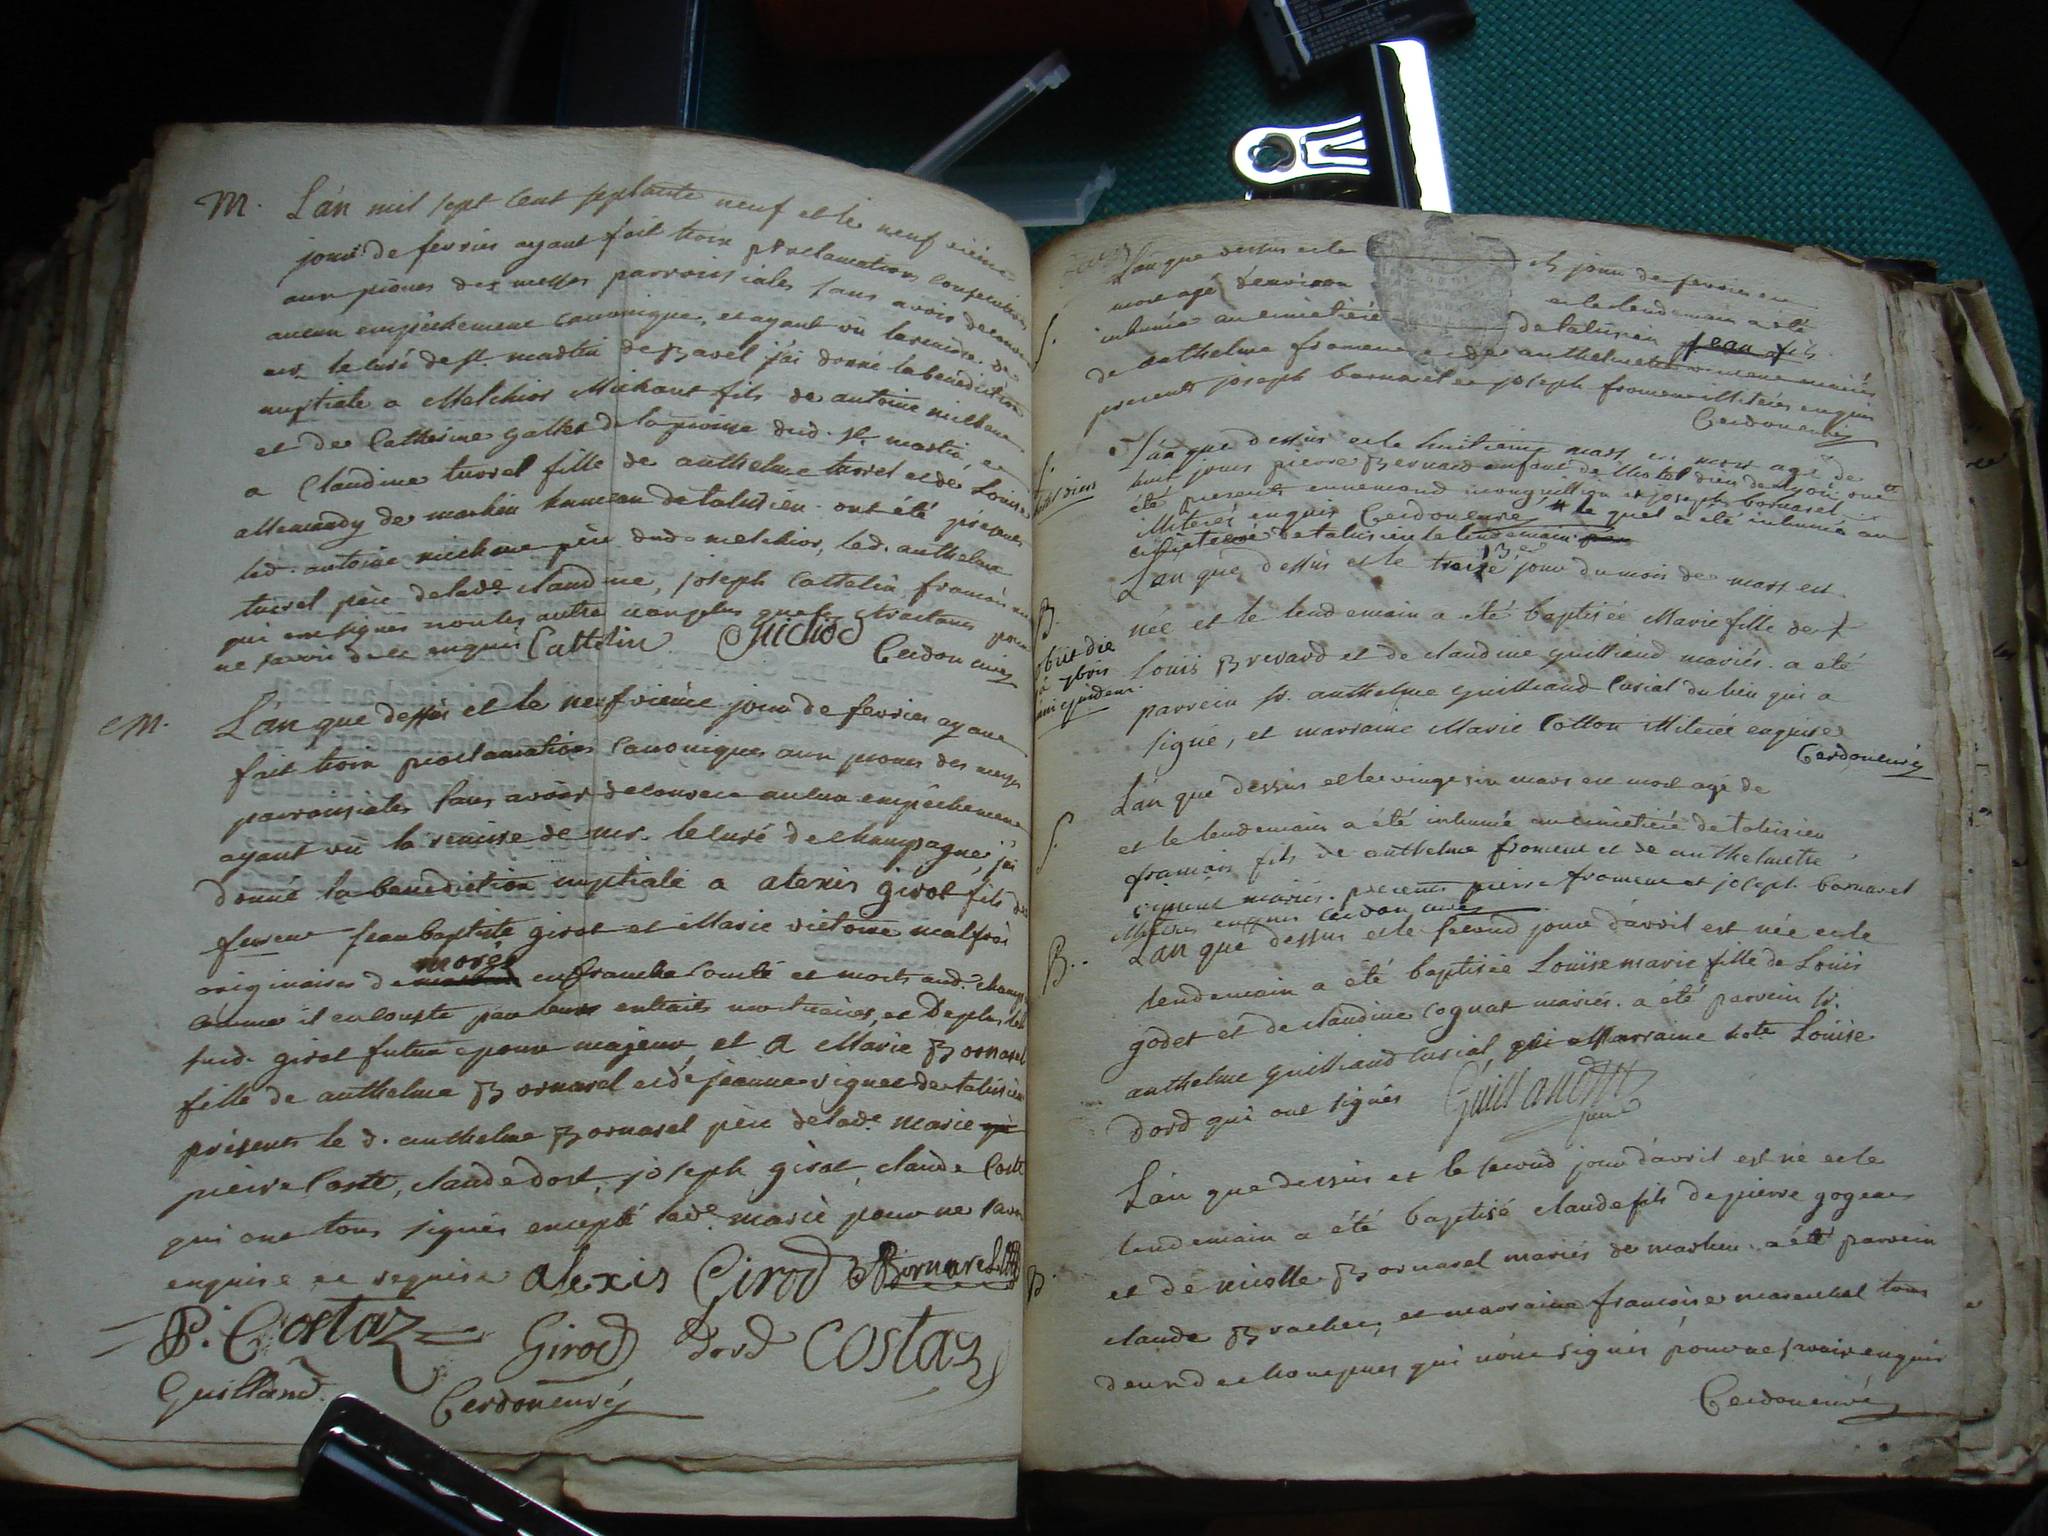 M. L'an mil sept cent septante neuf et le neuf vieme
jour de fevrier ayant fait trois proclamations consecutives
aux prônes des messes parroissiales sans avoir decouvert
aucun empêchement canonique, et ayant vû la remise de
mr. le curé de st. martin de Bavel j'ai donné la benediction
nuptiale a Melchior Michaut fils de antoine michaux
et de Catherine gallet de la paroisse dud. st. martin, et
a Claudine turrel fille de anthelme turrel et de Louise
allemandy de marlieu hameau de talissieu. ont été présents
led. antoine michaux père dud. melchior, led. anthelme
turrel père de lade. claudine, joseph Cattelin, francois
qui ont signés non les autres non plus que les contractants pour
ne savoir de ce enquis Cattelin Guichod Cerdon curé
M. L'an que dessus et le neufvieme jour de fevrier ayant
fait trois proclamations canoniques aux prones des messes
parroissiales sans avoir decouvert aucun empêchement
ayant vû la remise de mr. le curé de champagne, j'ai
donné la benediction nuptiale a alexis girod fils de
feu Jean baptiste girod et Marie victoire malfroi
morges
originaires de en franche comté et morts aud. champ
comme il en conste par leurs extraits mortuaires, et De plus led
sud. girod futur epoux majeur, et a Marie Bornarel
fille de anthelme Bornarel et de jeanne vignet de talissieu
présents le d. anthelme Bornarel père de lade. marie
pierre Coste, claude dord, joseph girod, claude Coste
qui ont tous signés excepté lade. marie pour ne savoir
enquise et requise alexis Girod ABornarel
P. Costaz Girod Dord Costaz
Guilland Cerdon curé
L'an que dessus et le jour de fevrier est
mort agé d'environ et le lendemain a été
S. inhumé au cimetière de talissieu Jean fils
de anthelme froment et de anthelmette mariés
presents joseph bornarel et joseph froment illiterés enquis
Cerdon curé
S. L'an que dessus et le huitieme mars est mort agé de
huit jours pierre Bernard enfant de l'hotel dieu de Lyon ont
été présents ennemond et joseph bornarel
illiterés enquis Cerdon curé # le quel a été inhumé au
cimetière de talissieu le lendemain
13e
L'an que dessus et le treize jour du mois de mars est
B. née et le lendemain a été baptisée Marie fille de
obiit die
Louis Brevard et de claudine guilliand mariés. a été
parrein sr. anthelme guilliand curial du lieu qui a
signé, et marraine Marie Cotton illiterée enquise
Cerdon curé
L'an que dessus et le vingt six mars est mort agé de
S. et le lendemain a été inhumé au cimetière de talissieu
francois fils de anthelme froment et de anthelmette
mariés. presents pierre froment et joseph bornarel
illiterés enquis Cerdon curé
B. L'an que dessus et le second jour d'avril est née et le
lendemain a été baptisée Louise marie fille de Louis
godet et de claudine cognat mariés. a été parrein sr.
anthelme guilliand curial, et Marraine Louise
Dord qui ont signés Guilland
L'an que dessus et le second jour d'avril est né et le
lendemain a été baptisé claude fils de pierre gogeat
B. et de nicolle Bornarel mariés de marlieu. a été parrein
claude Brachet, et marraine francoise marechal tous
deux de chouegnes qui n'ont signés pour ne savoir enquis
Cerdon curé